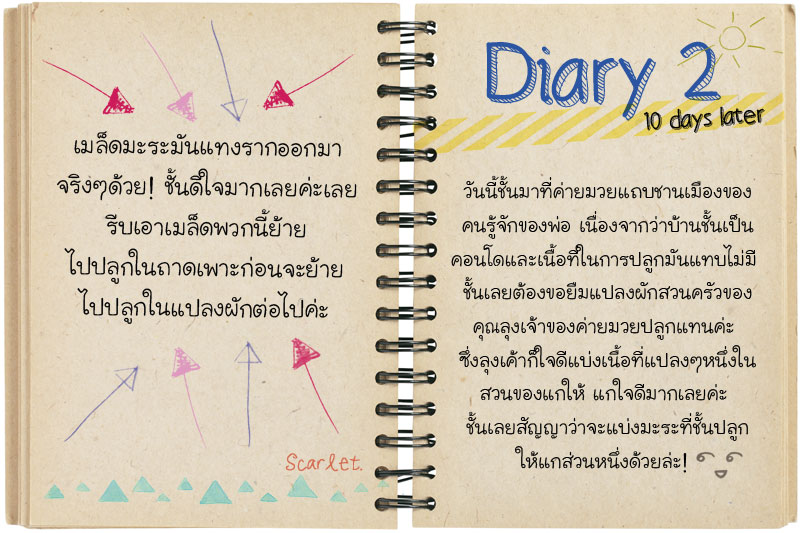 เมล็ดมะระมันแทงรากออกมา
จริงๆด้วย! ชั้นดีใจมากเลยค่ะเลย
รีบเอาเมล็ดพวกนี้ย้าย
ไปปลูกในถาดเพาะก่อนจะย้าย
ไปปลูกในแปลงผักต่อไปค่ะ
Scarlet.
Diary 2
10 days later
วันนี้ชั้นมาที่ค่ายมวยแถบชานเมืองของ
คนรู้จักของพ่อ เนื่องจากว่าบ้านชั้นเป็น
คอนโดและเนื้อที่ในการปลูกมันแทบไม่มี
ชั้นเลยต้องขอยืมแปลงผักสวนครัวของ
คุณลุงเจ้าของค่ายมวยปลูกแทนค่ะ
ซึ่งลุงเค้าก็ใจดีแบ่งเนื้อที่แปลงๆหนึ่งใน
สวนของแกให้ แกใจดีมากเลยค่ะ
ชั้นเลยสัญญาว่าจะแบ่งมะระที่ชั้นปลูก
ให้แกส่วนหนึ่งด้วยล่ะ!